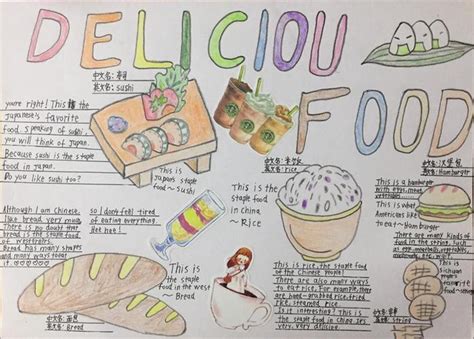 DELICIOU
FOOD
中文名：寿司
英文名：sushi
you're right! This is the
Japanese's favorite
food, speaking of sushi,
you will think of Japan.
Because sushi is the staple
food in Japan.
Do you like sushi too?
This is
Japan's staple
food ~ sushi
英文名：Rice
This is the
staple food
in China
~ Rice
中文名：汉堡包
英文名：Hamburger
This is a hamburger
with
This is what
Americans like
to eat ~ Hamburger
There are many kinds of
food in the string, such
as
This is
Sichuan
people's
favorite
food ~
Although I am Chinese,
like bread very much
There is no doubt that
bread is the staple food
of westerners.
Bread has many shapes
and many ways to eat
it.
so I don't feel tired
of eating everything.
Het het!
This is
the staple
food in the west
~ Bread
中文名：面包
英文名：Bread
This is rice, the staple food
of the Chinese people!
There are also many ways
to eat rice. For example, there
are hand-grabbed rice, fried
rice, steamed rice.
Is it interesting? This is
the staple food in China. It's
very, very delicious
英文名：String